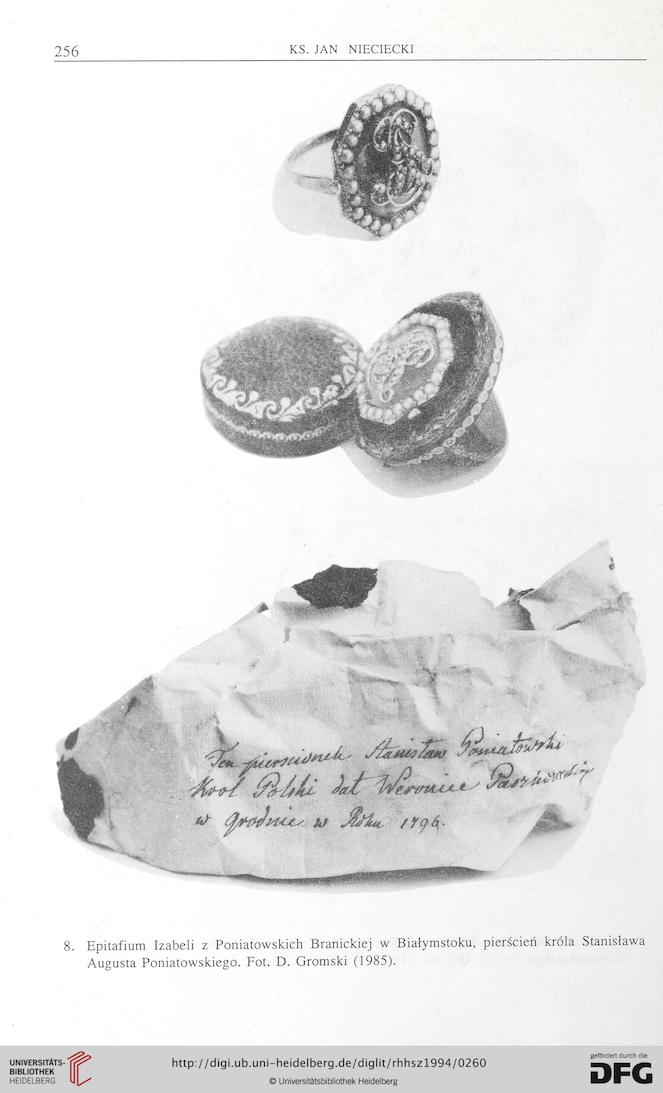 256
KS. JAN NIECIECKI
Ten pierscionek Stanisław Poniatowski
Krol Polski dał Weronice Paszkowskiey
w Grodnie w Roku 1796.
8. Epitafium Izabeli z Poniatowskich Branickiej w Białymstoku, pierścień króla Stanisława
Augusta Poniatowskiego. Fot. D. Gromski (1985).
UNIVERSITÄTS-
BIBLIOTHEK
HEIDELBERG
http://digi.ub.uni-heidelberg.de/diglit/rhhsz1994/0260
© Universitätsbibliothek Heidelberg
gefördert durch die
DFG